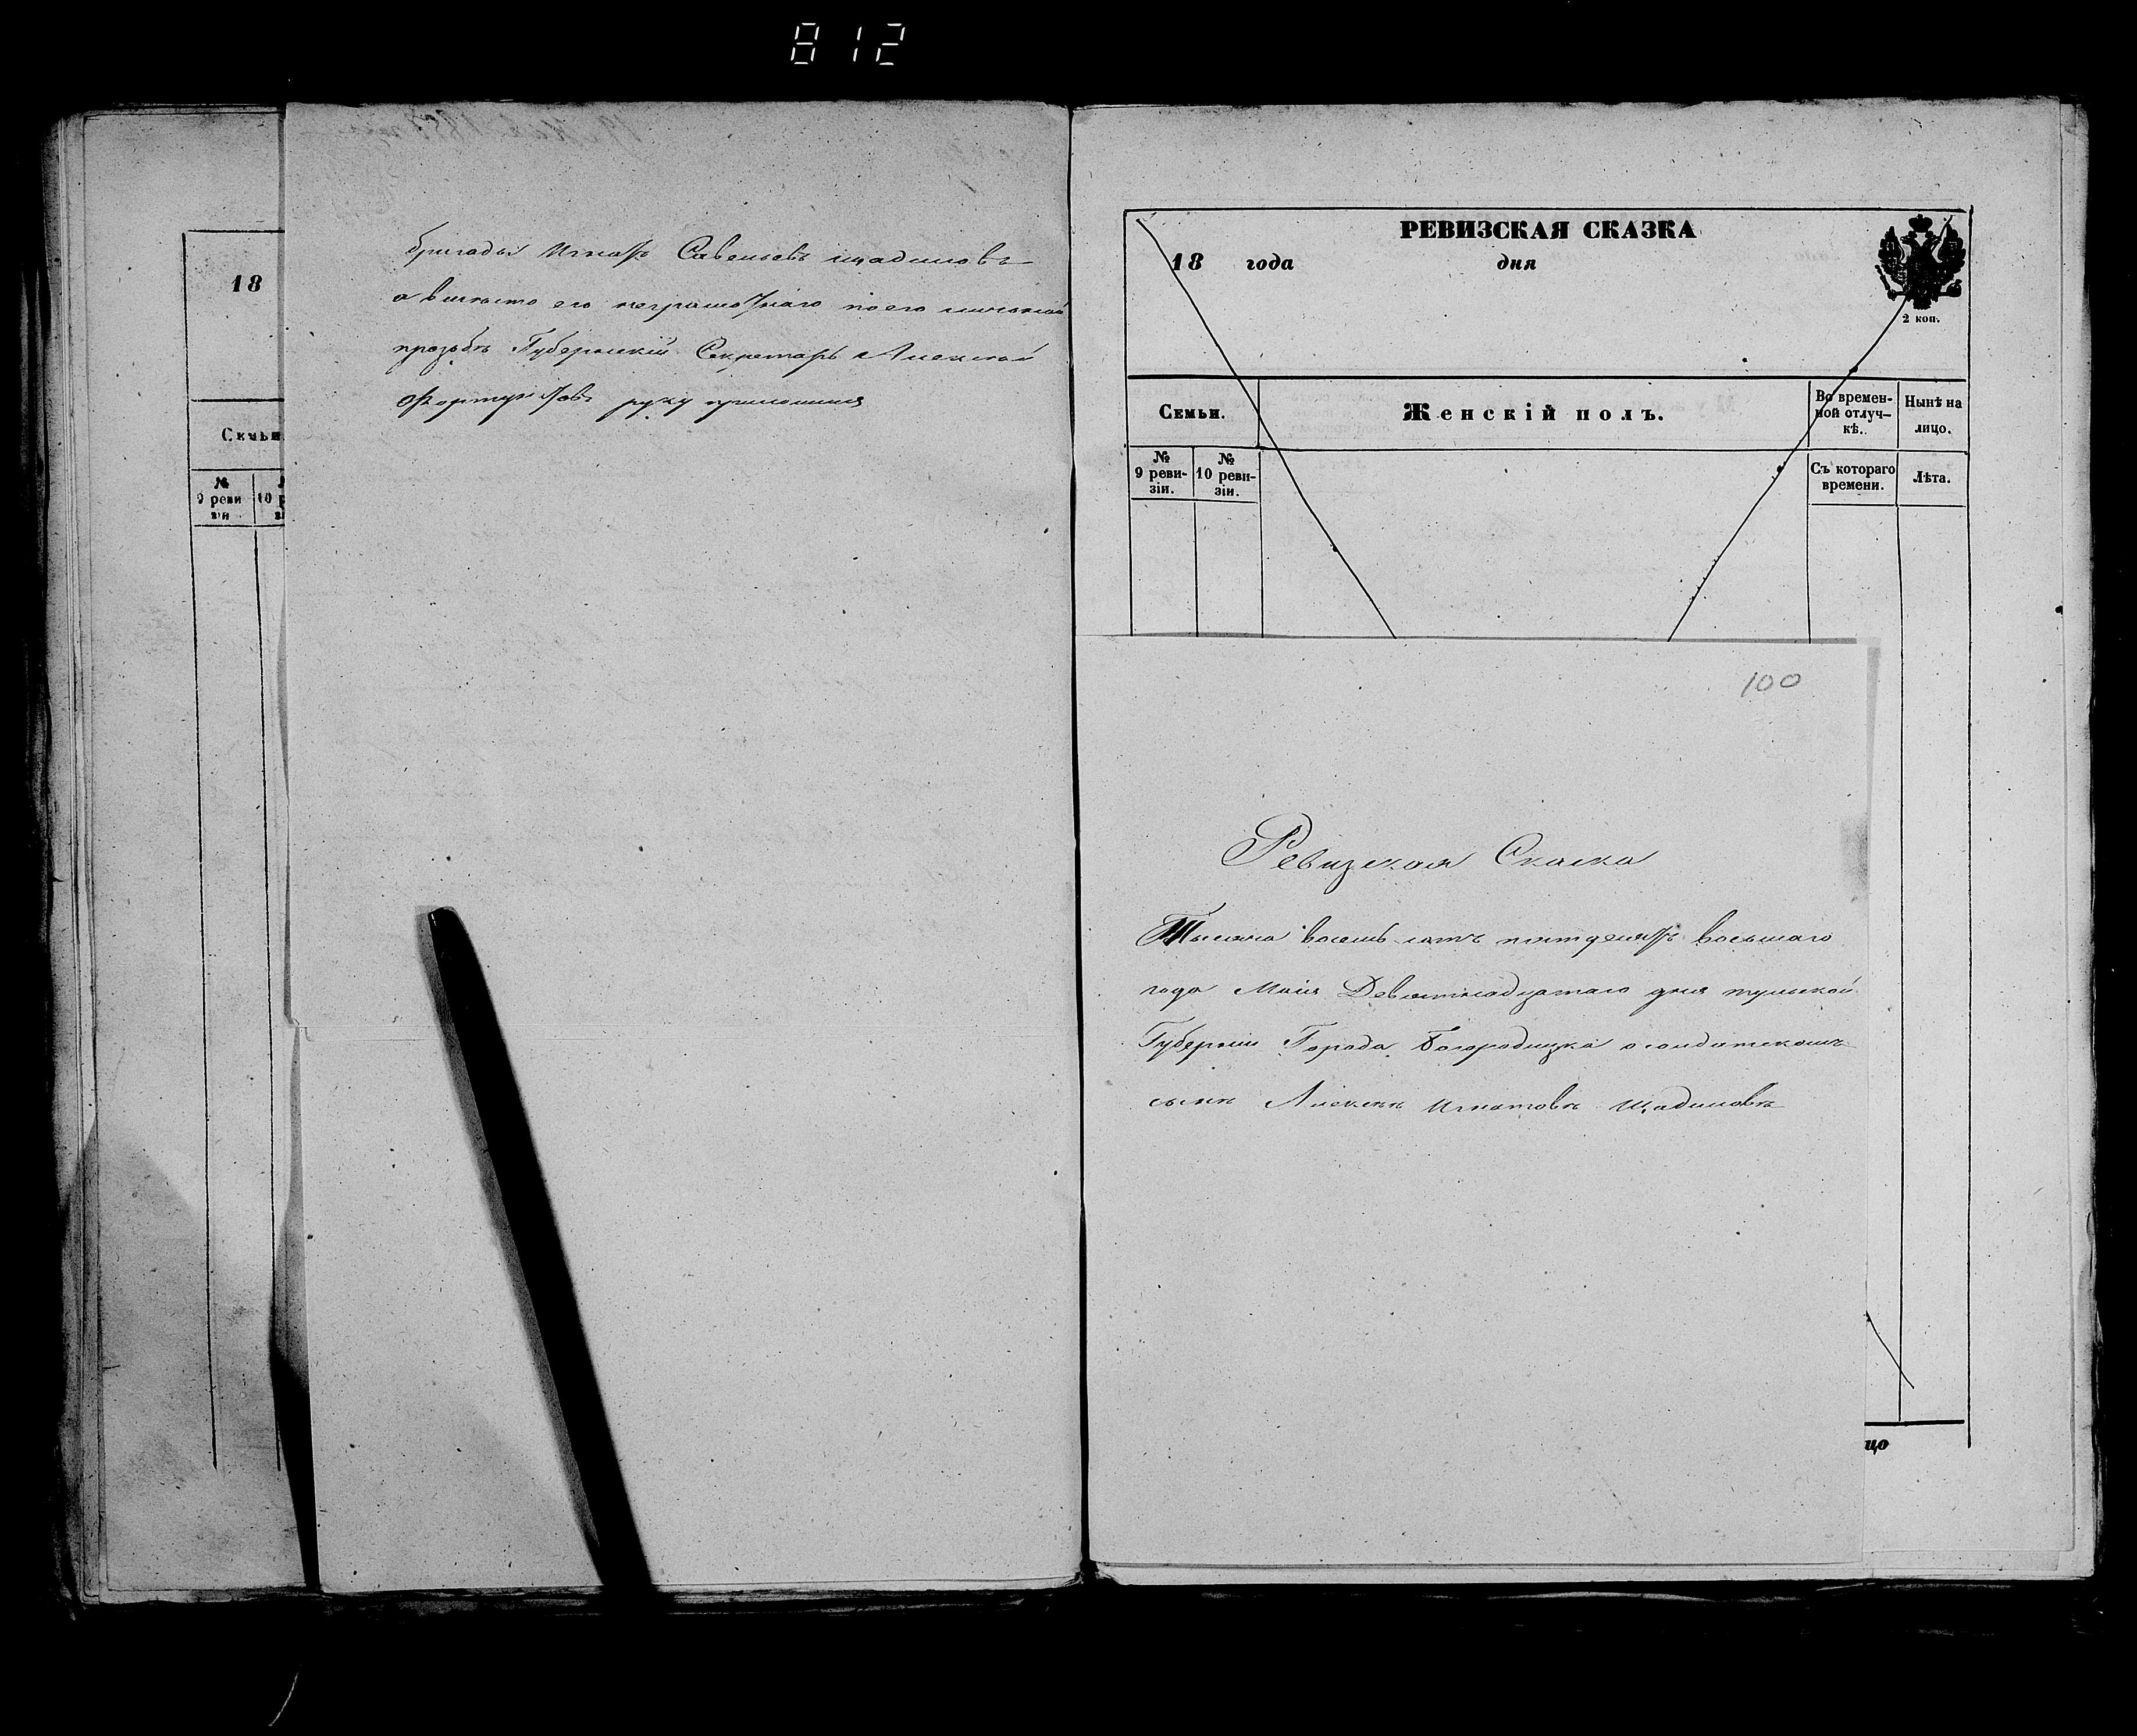 812
18
Семьи
№
9 реви
зіи
10 р
бригады Игнатъ Савельевъ Щадиловъ
а вместо его неграмотнаго по его личной
прозьбѣ Губернскій Секретарь Алексей
Фортунатовъ руку приложилъ
РЕВИЗСКАЯ СКАЗКА
18 года дня
2 коп.
Семьи.
Женскій полъ.
Во времен-
ной отлуч-
кѣ.
Нынѣ на
лицо.
№
9 реви-
зіи.
№
10 реви-
зіи.
Съ котораго
времени.
Лѣта.
100
Ревизская Скаска
Тысяча восемь сотъ пятдесятъ восьмаго
года Маія Девятнадцатаго дня тульской
Губерніи Города Богородицка о солдатскомъ
сынѣ Алексѣѣ Игнатовѣ Щадиловѣ
цо